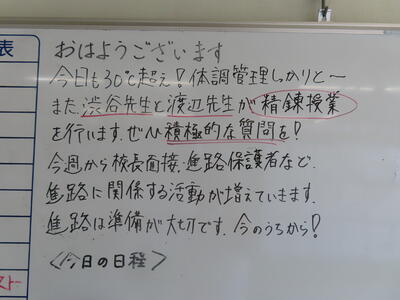 表
おはようございます
今日も30℃超え!体調管理しっかりと〜
また、渋谷先生と渡辺先生が精錬授業
を行います。ぜひ積極的な質問を!
今週から校長面接・進路保護者など、
進路に関係する活動が増えていきます。
進路は準備が大切です。今のうちから!
<今日の日程>
ストー